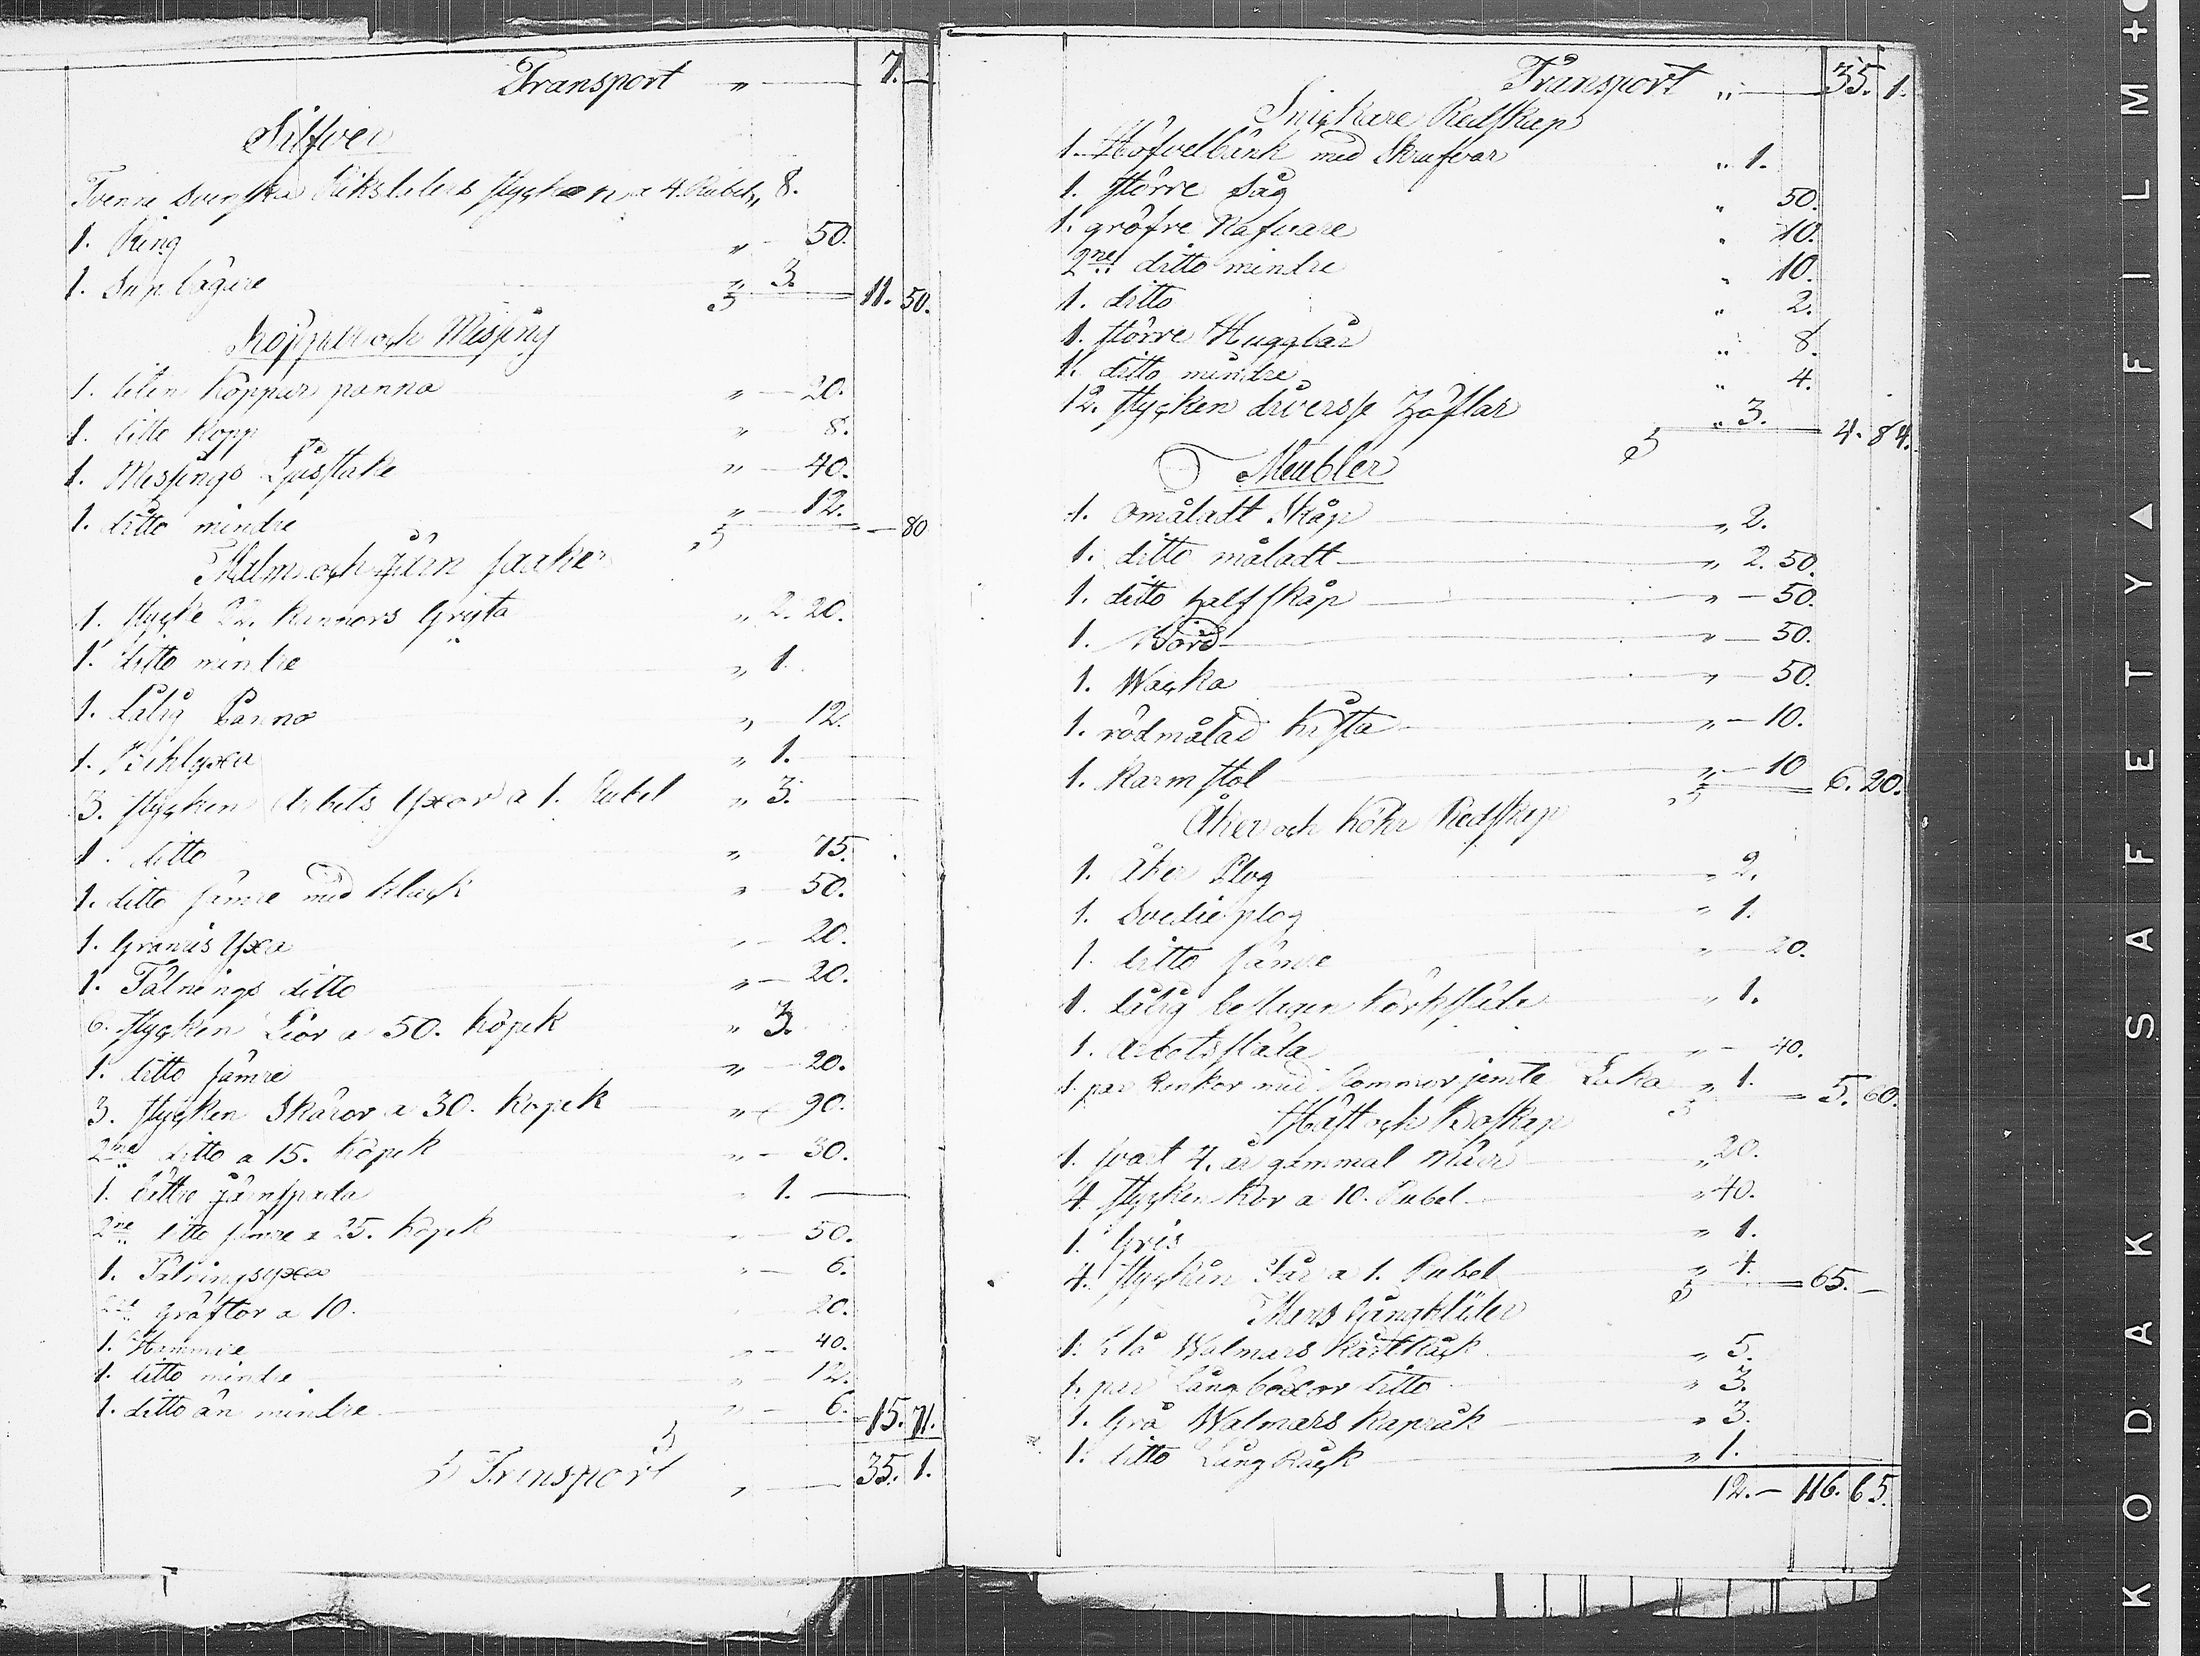 Transport " — 7. —
Silfver
Tvenne Svenska Riksdalers stycken a 4 Rubel " 8.
1. Ring " — 50.
1. Supbägare " 3. 11. 50.
Koppar och Messing
1. liten koppar panna " — 20.
1. ditto kopp " — 8.
1. Messings Ljusstake " — 40.
1. ditto mindre " — 12. — 80
Malm och Järn saker
1. stycke 22. kannors Gryta " 2. 20.
1. ditto mindre " 1.
1. dålig Panna " — 12.
1. Bihlyxa " 1. —
3. stycken Arbets Yxor a 1. Rubel " 3. —
1. ditto " — 75.
1. ditto sämre med klack " — 50.
1. Granris Yxa " — 20.
1. Tälnings ditto " — 20.
6. stycken Liar a 50. kopek " 3.
1. ditto sämre " — 20.
3. stycken Skäror a 30. kopek " — 90.
2ne ditto a 15. kopek " — 30.
1. bättre järnspada " 1. —
2ne ditto sämre a 25. kopek " — 50.
1. Tälningsyxa " — 6.
2ne gräftor a 10. " — 20.
1. Hammare " — 40.
1. ditto mindre " — 12.
1. ditto än mindre " — 6. 15. 71.
Transport " — 35. 1.
Transport " — 35. 1.
Snickare Redskap
1. Höfvelbänk med Skrufvar " 1.
1. större Såg " 50.
1. gröfre Nafvare " 10.
2ne ditto mindre " 10.
1. ditto " 2.
1. större Huggbår " 8.
1. ditto mindre " 4.
12. stycken diverse Höflar " 3. 4. 84.
Meubler
1. Omåladt Skåp " 2.
1. ditto måladt " 2. 50.
1. ditto half skåp " — 50.
1. Bord " — 50.
1. Wagka " — 50.
1. rödmålad kista " — 10.
1. Karmstol " — 10 6. 20.
Åker och Köhr Redskap
1. Åker Plog " 2.
1. Svedieplog " 1.
1. ditto sämre " — 20.
1. dålig beslagen körksläda " 1.
1. arbetssläda " — 40.
1. par Renkor med Sommar jemte Laka " 1. 5. 60.
Häst och Boskap
1. svart 4. år gammal Märr " 20.
4. stycken Kor a 10. Rubel " 40.
1. Gris " 1.
4. stycken Får a 1. Rubel " 4. 65. —
Mans Gångkläder
1. blå Walmars kårt Råck " 5.
1. par Långböxor ditto " 3.
1. Grå Walmars Kapråk " 3.
1. ditto Lång Råck " 1.
12. — 116. 65.
KODAK SAFETY ▲ FILM +●